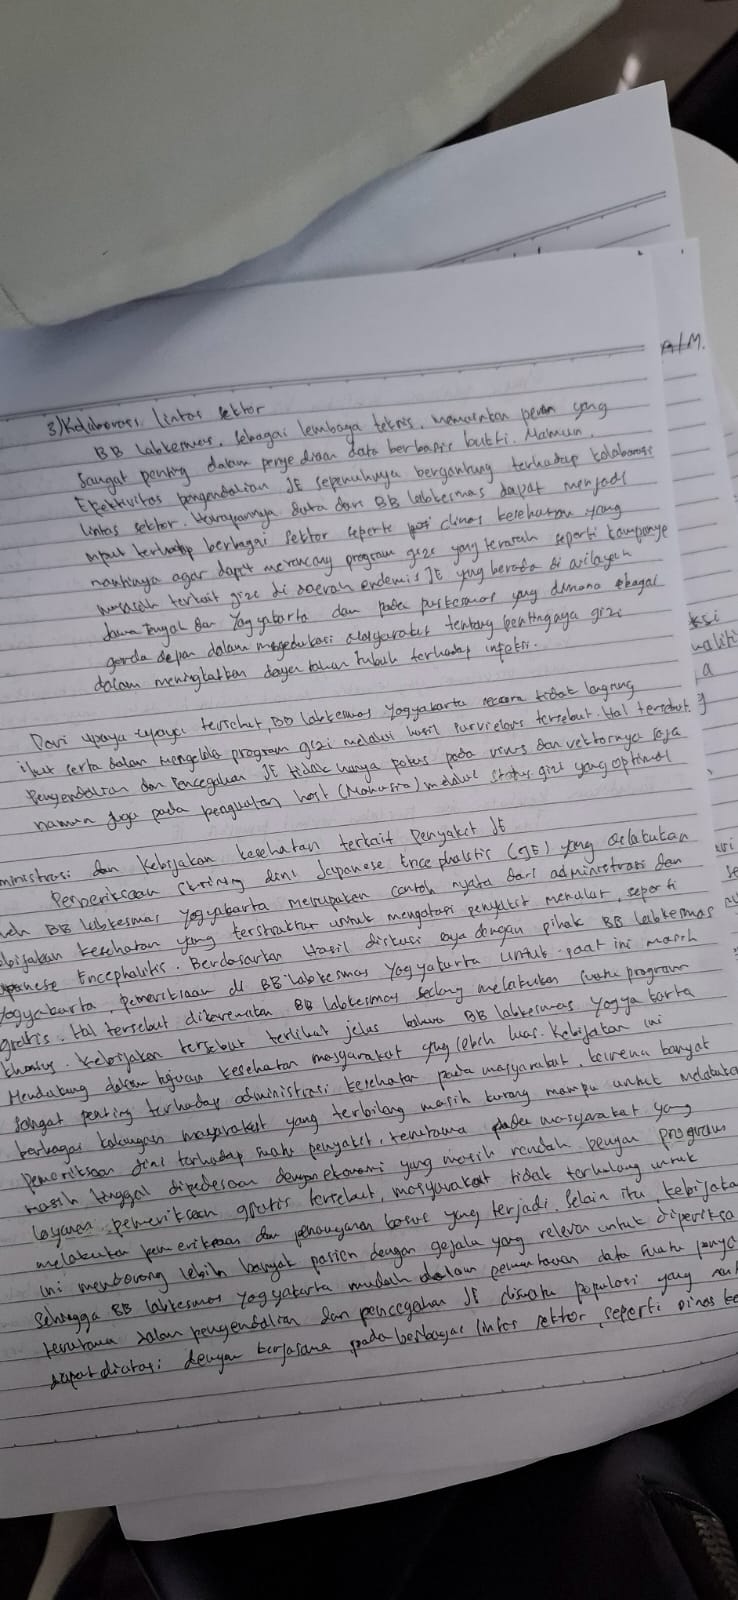 A/M.
3) Kolaborasi lintas sektor
BB Labkesmas, sebagai lembaga teknis, memainkan peran yang
sangat penting dalam penyediaan data berbasis bukti. Namun,
Efektivitas pengendalian JE sepenuhnya bergantung terhadap kolaborasi
lintas sektor. Harapannya data dari BB Labkesmas dapat menjadi
input terhadap berbagai sektor seperti dinas kesehatan yang
nantinya agar dapat merancang program gizi yang terarah seperti kampanye
terkait gizi di daerah endemis JE yang berada di wilayah
Jawa Tengah dan Yogyakarta dan pada puskesmas yang dimana sebagai
garda depan dalam mengedukasi masyarakat tentang pentingnya gizi
dalam meningkatkan daya tahan tubuh terhadap infeksi.
Dari upaya-upaya tersebut, BB Labkesmas Yogyakarta secara tidak langsung
ikut serta dalam mengelola program gizi melalui hasil surveilans tersebut. Hal tersebut
Pengendalian dan Pencegahan JE tidak hanya fokus pada virus dan vektornya saja
namun juga pada penguatan host (Manusia) melalui status gizi yang optimal
ministrasi dan Kebijakan kesehatan terkait Penyakit JE
Pemeriksaan skrining dini Japanese Encephalitis (JE) yang dilakukan
oleh BB Labkesmas Yogyakarta merupakan contoh nyata dari administrasi dan
bijakan kesehatan yang terstruktur untuk mengatasi penyakit menular, seperti
apanese Encephalitis. Berdasarkan Hasil diskusi saya dengan pihak BB Labkesmas
Yogyakarta, pemeriksaan di BB Labkesmas Yogyakarta untuk saat ini masih
gratis. Hal tersebut dikarenakan BB Labkesmas sedang melakukan suatu program
khusus. Kebijakan tersebut terlihat jelas bahwa BB Labkesmas Yogyakarta
Mendukung dalam tujuan kesehatan masyarakat yang lebih luas. Kebijakan ini
sangat penting terhadap administrasi kesehatan pada masyarakat, karena banyak
berbagai kalangan masyarakat yang terbilang masih kurang mampu untuk melakuka
pemeriksaan dini terhadap suatu penyakit, terutama pada masyarakat yang
masih tinggal dipedesaan dengan ekonomi yang masih rendah. Dengan program
layanan pemeriksaan gratis tersebut, masyarakat tidak terhalang untuk
melakukan pemeriksaan dan penanganan kasus yang terjadi. Selain itu, kebijaka
ini mendorong lebih banyak pasien dengan gejala yang relevan untuk diperiksa
Sehingga BB Labkesmas Yogyakarta mudah dalam pemantauan data suatu penya
terutama dalam pengendalian dan pencegahan JE disuatu populasi yang
dapat diatasi dengan kerjasama pada berbagai lintas sektor, seperti Dinas ke